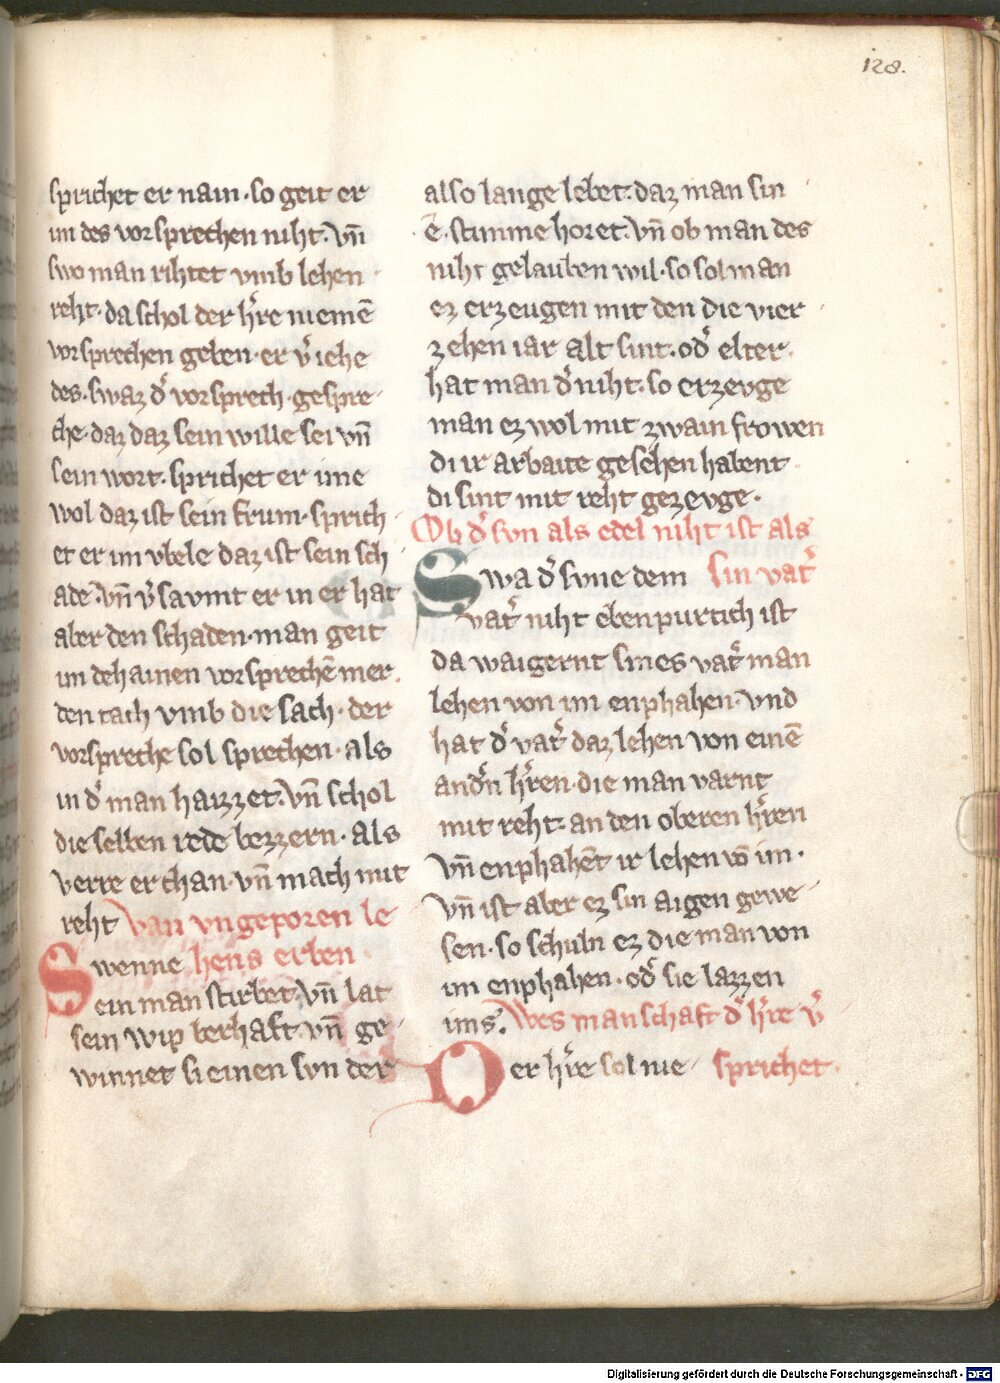 128.
sprichet er nain · so geit er
im des vorsprechen niht · vn̄
swo man rihtet vmb lehen
reht · da schol der hr̄e niemē
vorsprechen geben · er v̓iehe
des · swaz d̓ vorsprech · gespre
che · daz daz sein wille sei vn̄
sein wort · sprichet er ime
wol daz ist sein frum · sprich
et er im vbele daz ist sein sch
ade · vn̄ v̓savmt er in er hat
aber den schaden · man geit
im dehainen vorsprechē mer
den taih vmb die sach · der
vorspreche sol sprechen · als
in d̓ man haizzet · vn̄ schol
die selben rede bezzern · als
verre er chan · vn̄ mach mit
reht Van vngeporen le
Swenne hens erben ·
ein man stirbet · vn̄ lat
sein wip berhaft · vn̄ ge
winnet si einen svn der
also lange lebet · daz man sin
e · stimme horet · vn̄ ob man des
niht gelauben wil · so sol man
ez erzeugen mit den die vier
zehen iar alt sint · od̓ elter ·
hat man d̓ niht · so erzevge
man ez wol mit zwain frowen
di ir arbaite gesehen habent
di sint mit reht gezevge ·
Ob d̓ svn als edel niht ist als
Swa d̓ svne dem sin vat̓
vat̓ niht ebenpurtich ist
da waigernt sines vat̓ man
lehen von im enphahen · vnd
hat d̓ vat̓ daz lehen von einē
and̓n hr̄en · die man varnt
mit reht · an den oberen hr̄en
vn̄ enphahēt ir lehen vō im ·
vn̄ ist aber ez sin aigen gewe
sen · so schuln ez die man von
im enphahen · od̓ sie lazzen
ims · Wes manschaft d̓ hr̄e v̓
Der hr̄e sol nie sprichet ·
Digitalisierung gefördert durch die Deutsche Forschungsgemeinschaft - DFG